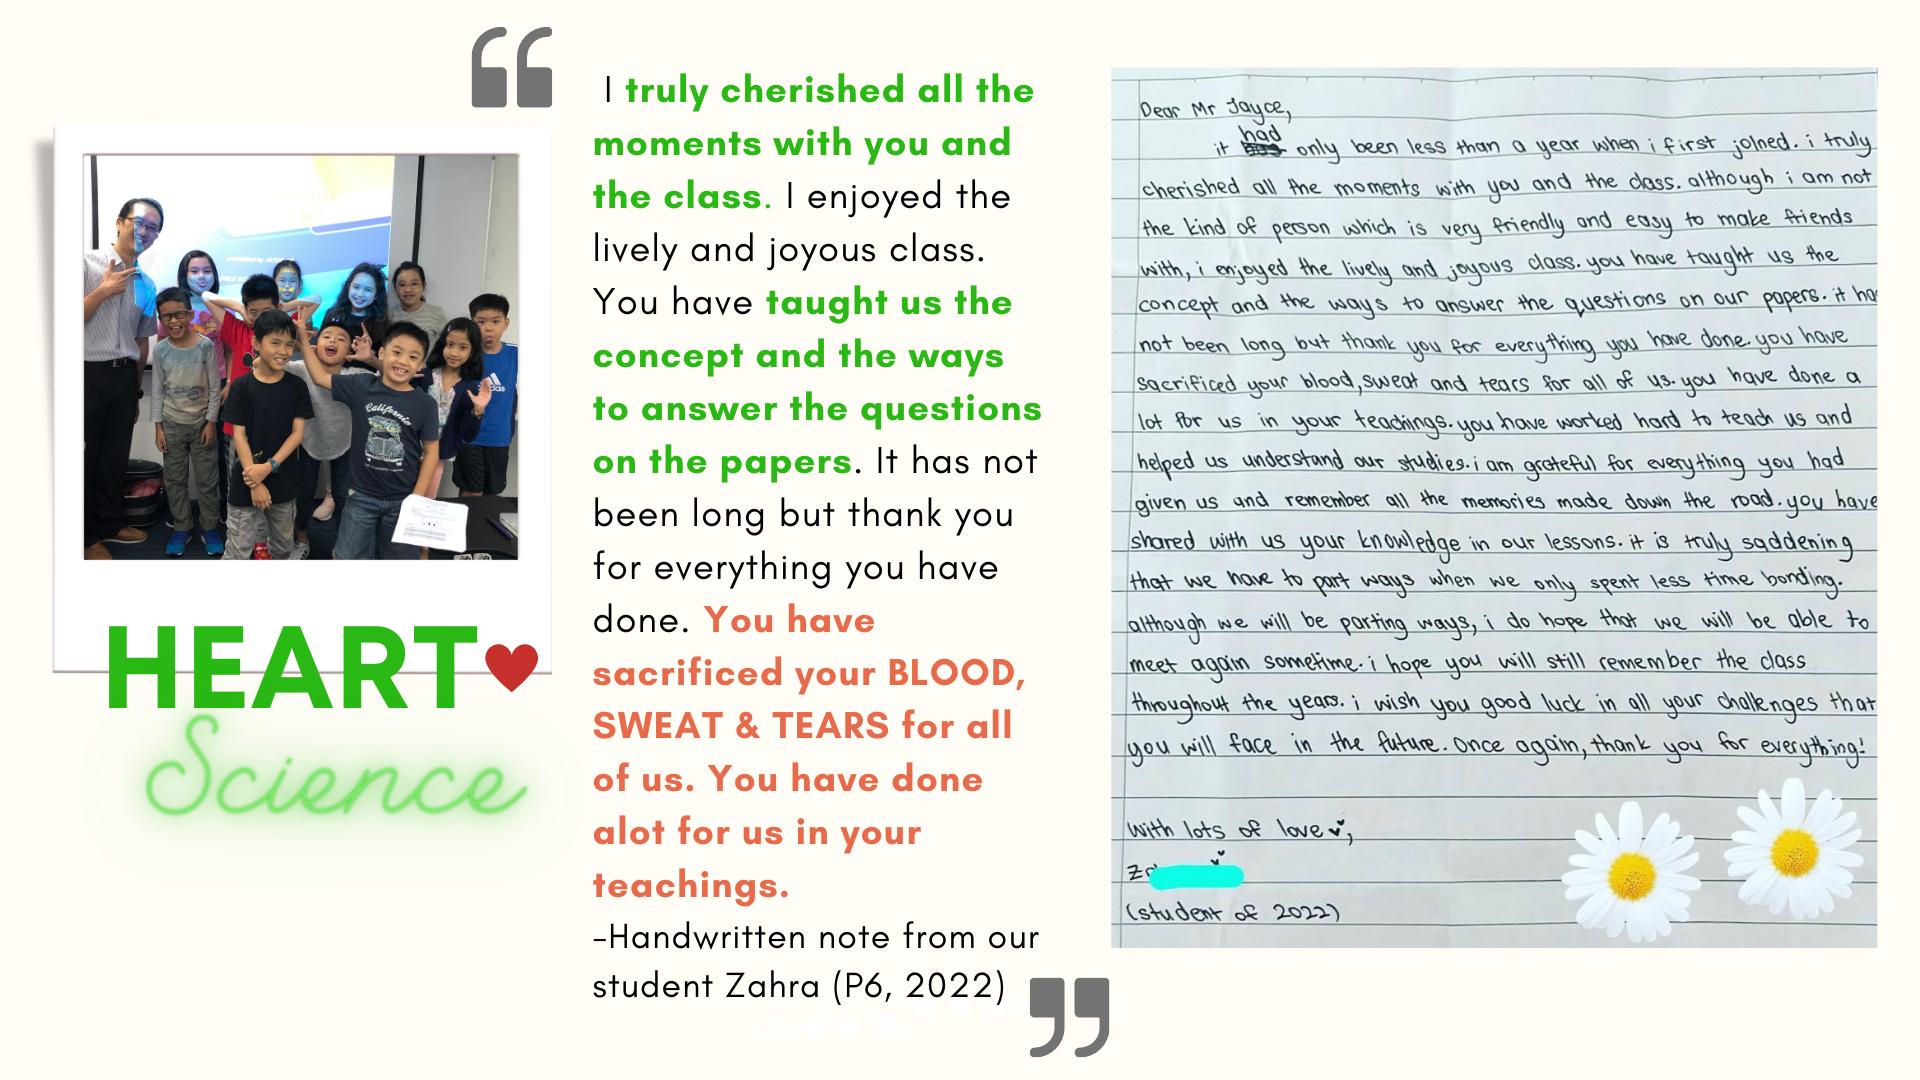 I truly cherished all the
moments with you and
the class. I enjoyed the
lively and joyous class.
You have taught us the
concept and the ways
to answer the questions
on the papers. It has not
been long but thank you
for everything you have
done. You have
sacrificed your BLOOD,
SWEAT & TEARS for all
of us. You have done
alot for us in your
teachings.
-Handwritten note from our
student Zahra (P6, 2022)
HEART
Science
California
adidas
presented by
Dear Mr Jayce,
it had only been less than a year when i first joined. i truly
cherished all the moments with you and the class. although i am not
the kind of person which is very friendly and easy to make friends
with, i enjoyed the lively and joyous class. you have taught us the
concept and the ways to answer the questions on our papers. it has
not been long but thank you for everything you have done. you have
sacrificed your blood, sweat and tears for all of us. you have done a
lot for us in your teachings. you have worked hard to teach us and
helped us understand our studies. i am grateful for everything you had
given us and remember all the memories made down the road. you have
shared with us your knowledge in our lessons. it is truly saddening
that we have to part ways when we only spent less time bonding.
although we will be parting ways, i do hope that we will be able to
meet again sometime. i hope you will still remember the class
throughout the years. i wish you good luck in all your challenges that
you will face in the future. Once again, thank you for everything!
With lots of love,
(student of 2022)